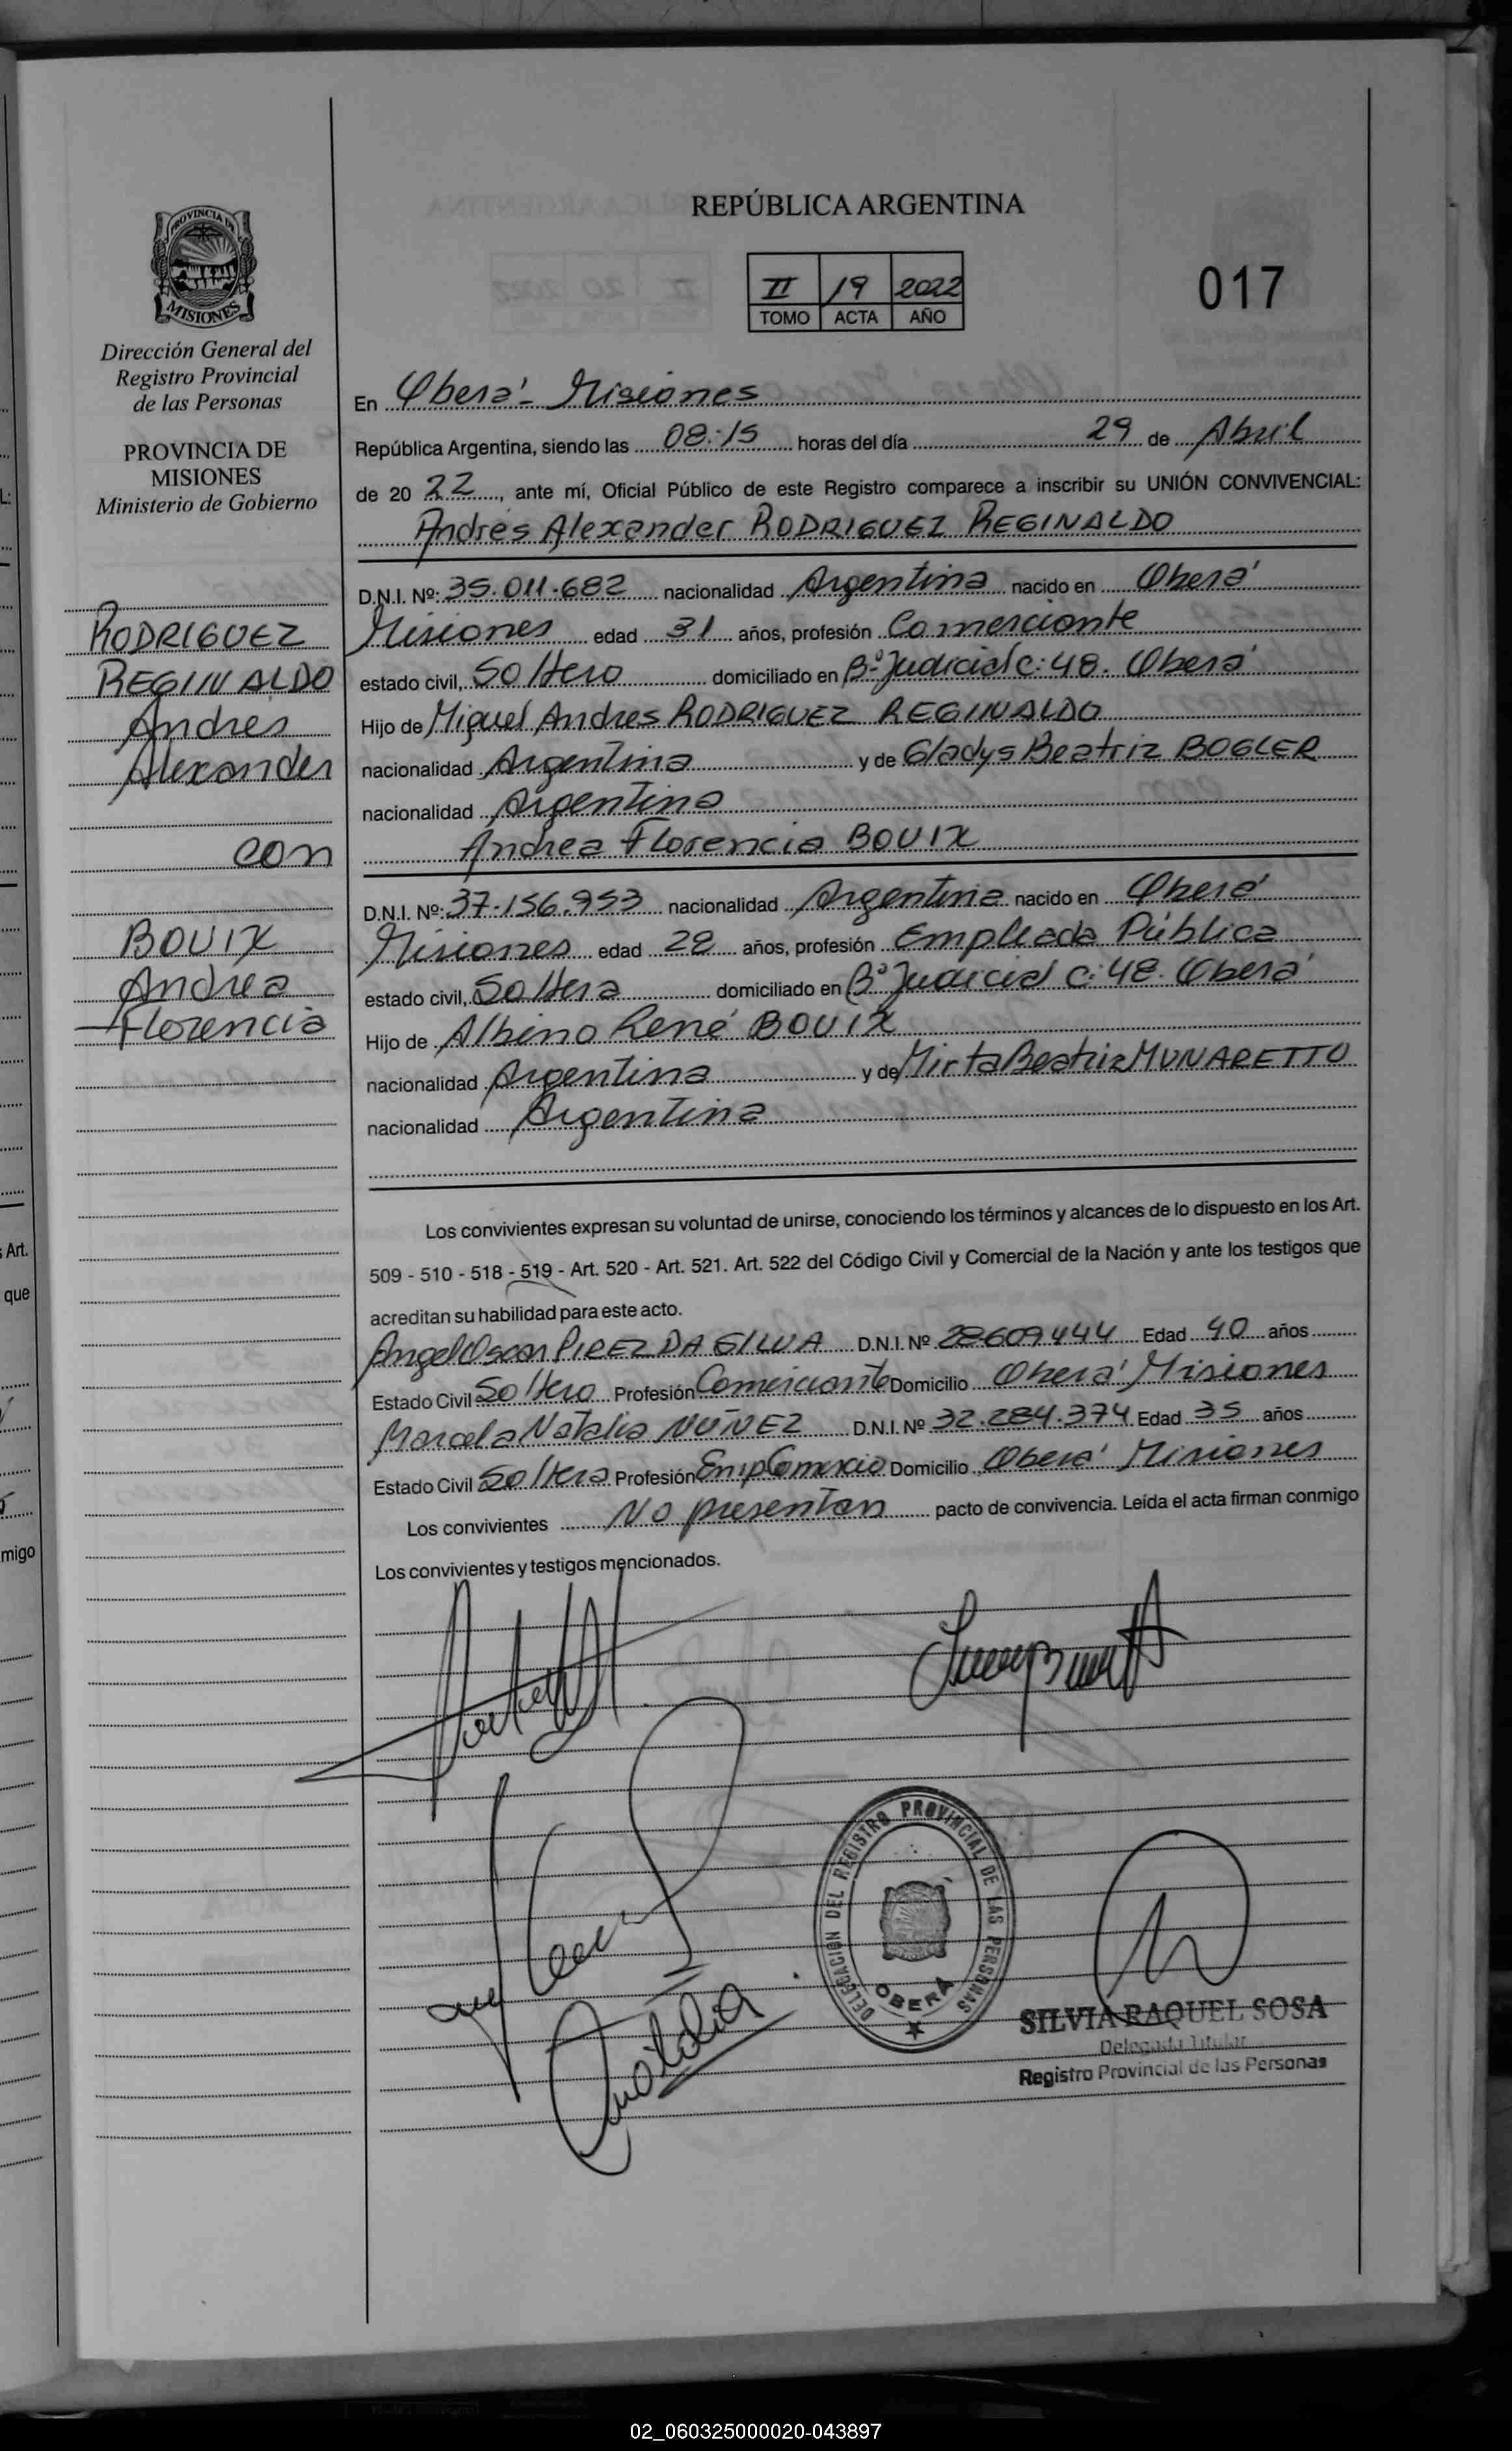 REPÚBLICA ARGENTINA
II 19 2022
TOMO ACTA AÑO
017
PROVINCIA DE
MISIONES
Dirección General del
Registro Provincial
de las Personas
PROVINCIA DE
MISIONES
Ministerio de Gobierno
RODRIGUEZ
REGINALDO
Andres
Alexander
con
BOUIX
Andrea
Florencia
En Oberá - Misiones
República Argentina, siendo las 08:15 horas del día 29 de Abril
de 20 22, ante mí, Oficial Público de este Registro comparece a inscribir su UNIÓN CONVIVENCIAL:
Andrés Alexander RODRIGUEZ REGINALDO
D.N.I. Nº: 35.011.682 nacionalidad Argentina nacido en Oberá
Misiones edad 31 años, profesión Comerciante
estado civil, Soltero domiciliado en Bº Judicial C:48. Oberá
Hijo de Miguel Andres RODRIGUEZ REGINALDO
nacionalidad Argentina y de Gladys Beatriz BOGLER
nacionalidad Argentina
Andrea Florencia BOUIX
D.N.I. Nº: 37.156.953 nacionalidad Argentina nacido en Oberá
Misiones edad 28 años, profesión Empleada Pública
estado civil, Soltera domiciliado en Bº Judicial C:48. Oberá
Hijo de Albino René BOUIX
nacionalidad Argentina y de Mirta Beatriz MUNARETTO
nacionalidad Argentina
Los convivientes expresan su voluntad de unirse, conociendo los términos y alcances de lo dispuesto en los Art.
509 - 510 - 518 - 519 - Art. 520 - Art. 521. Art. 522 del Código Civil y Comercial de la Nación y ante los testigos que
acreditan su habilidad para este acto.
Angel Oscar PIREZ DA SILVA D.N.I. Nº 28609444 Edad 40 años
Estado Civil Soltero Profesión Comerciante Domicilio Oberá Misiones
Marcela Natalia NUÑEZ D.N.I. Nº 32.284.374 Edad 35 años
Estado Civil Soltera Profesión Emp Comercio Domicilio Oberá Misiones
Los convivientes No presentan pacto de convivencia. Leída el acta firman conmigo
Los convivientes y testigos mencionados.
Natalia
DELEGACIÓN DEL REGISTRO PROVINCIAL DE LAS PERSONAS
OBERA
SILVIA RAQUEL SOSA
Delegada Titular
Registro Provincial de las Personas
L:
Art.
que
migo
02_060325000020-043897